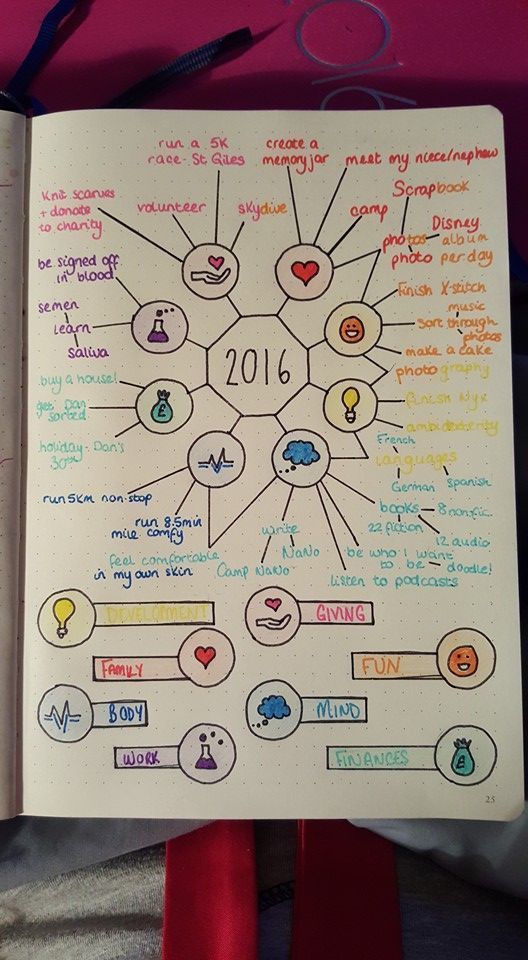 run a 5K
race - St Giles
create a
memory jar
meet my niece/nephew
Knit scarves
+ donate
to charity
volunteer
skydive
camp
Scrapbook
Disney
photos album
photo per day
be signed off
in blood
semen
learn
saliva
finish X-stitch
music
sort through
photos
make a cake
2016
photography
buy a house!
get Dan
sorted
holiday - Dan's
30th
finish Nyx
ambidexterity
French
languages
German
Spanish
run 5km non-stop
run 8.5min
mile comfy
feel comfortable
in my own skin
write
NaNo
Camp NaNo
books
8 nonfic.
22 fiction
12 audio
be who I want
to be
doodle!
listen to podcasts
DEVELOPMENT
GIVING
FAMILY
FUN
BODY
MIND
WORK
FINANCES
25